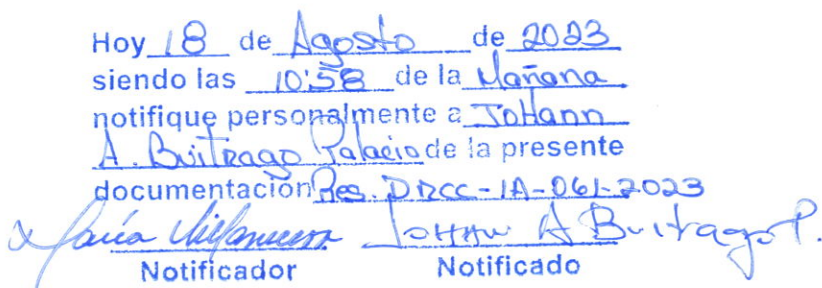 Hoy 18 de Agosto de 2023
siendo las 10:58 de la Mañana
notifique personalmente a Johann
A. Buitrago Palacio de la presente
documentación Res. DRCC-IA-061-2023
María Villanueva Johan A Buitrago P.
Notificador Notificado